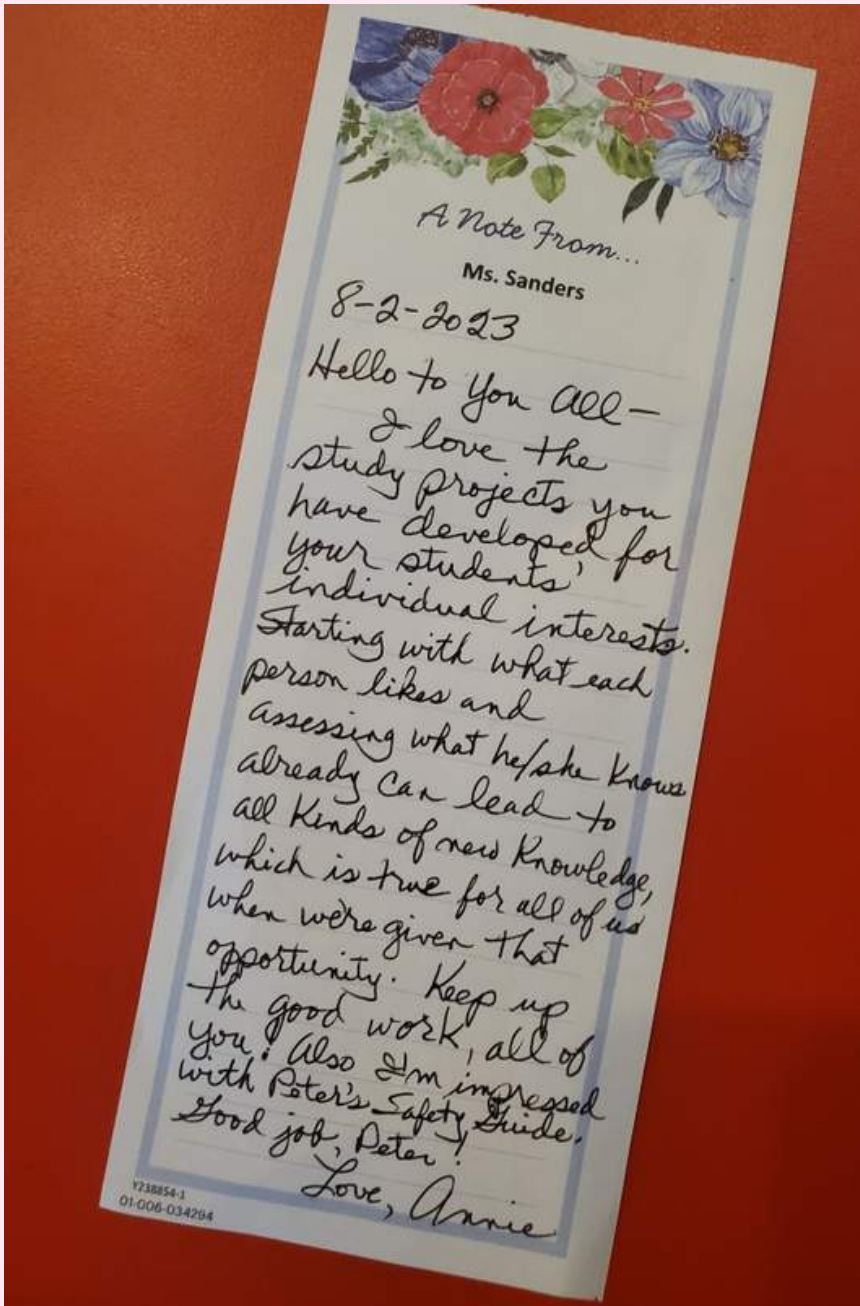 A Note From...
Ms. Sanders
8-2-2023
Hello to You All—
I love the
study projects you
have developed for
your students'
individual interests.
Starting with what each
person likes and
assessing what he/she knows
already can lead to
all kinds of new knowledge,
which is true for all of us
when we're given that
opportunity. Keep up
the good work, all of
you! Also I'm impressed
with Peter's Safety Guide.
Good job, Peter!
Love, Annie
Y238854-1
01-006-034294